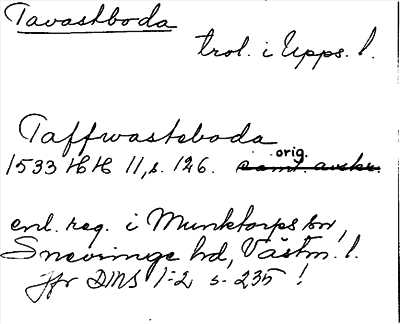 Tavastboda
trol. i Upps. l.
Taffwasteboda
orig.
1533 HH 11, s. 126. samt. avskr.
enl. reg. i Munktorps sn,
Snevringe hd, Västm. l.
jfr DMS 1:2 s. 235 !